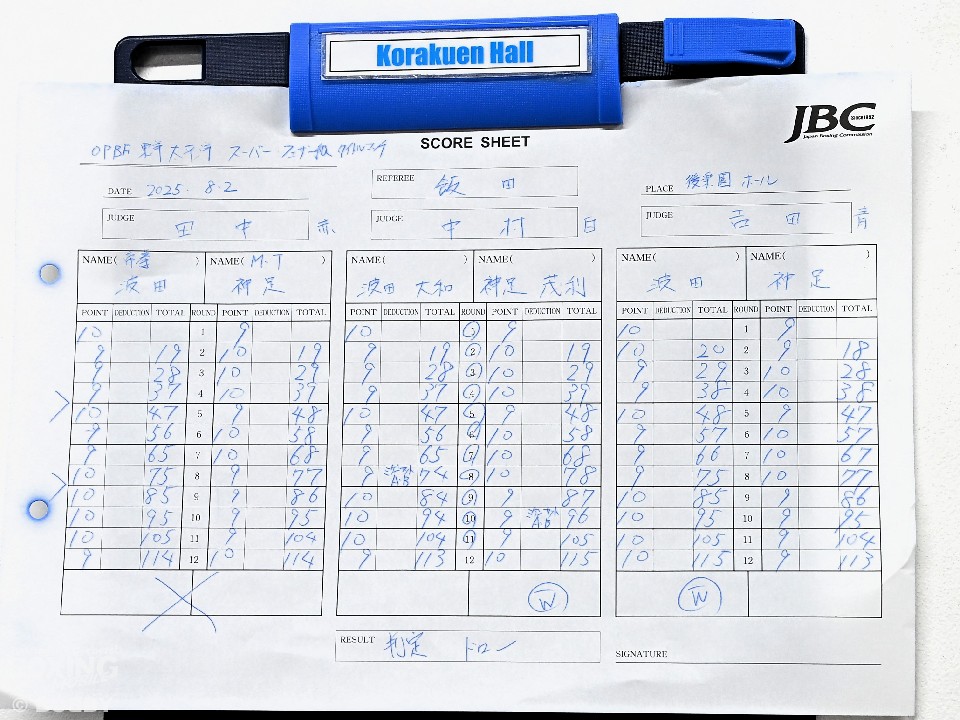 Korakuen Hall
JBC SINCE1952
Japan Boxing Commission
SCORE SHEET
OPBF 東洋太平洋 スーパーフェザー級 タイトルマッチ
DATE 2025. 8. 2
REFEREE 飯田
PLACE 後楽園ホール
JUDGE 田中 赤
JUDGE 中村 白
JUDGE 吉田 青
NAME( 斉拳 ) NAME( M.T ) NAME( ) NAME( ) NAME( ) NAME( )
波田 神足 波田 大和 神足 茂利 波田 神足
POINT DEDUCTION TOTAL ROUND POINT DEDUCTION TOTAL POINT DEDUCTION TOTAL ROUND POINT DEDUCTION TOTAL POINT DEDUCTION TOTAL ROUND POINT DEDUCTION TOTAL
10 1 9 10 1 9 10 1 9
9 19 2 10 19 9 19 2 10 19 10 20 2 9 18
9 28 3 10 29 9 28 3 10 29 9 29 3 10 28
9 37 4 10 39 9 37 4 10 39 9 38 4 10 38
10 47 5 9 48 10 47 5 9 48 10 48 5 9 47
9 56 6 10 58 9 56 6 10 58 9 57 6 10 57
9 65 7 10 68 9 65 7 10 68 9 66 7 10 67
10 75 8 9 77 9 74 8 10 78 9 75 8 10 77
10 85 9 9 86 10 84 9 9 87 10 85 9 9 86
10 95 10 9 95 10 94 10 9 96 10 95 10 9 95
10 105 11 9 104 10 104 11 9 105 10 105 11 9 104
9 114 12 10 114 9 113 12 10 115 10 115 12 9 113
W W
RESULT 判定 ドロー
SIGNATURE